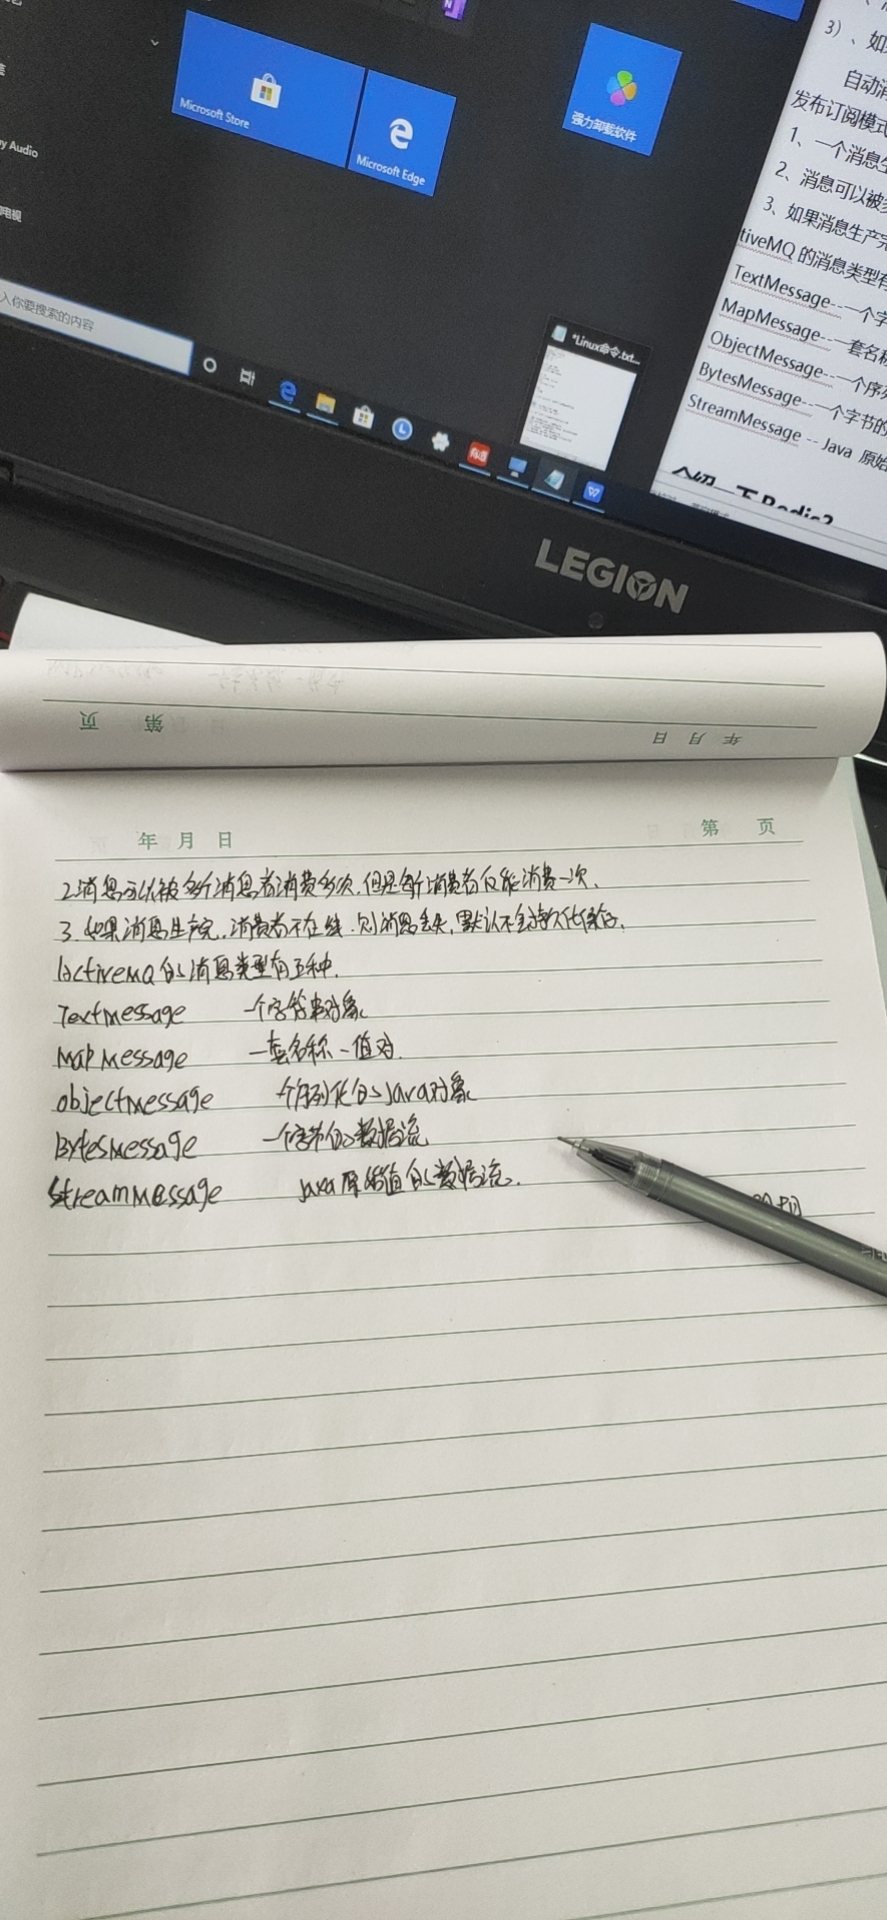 Microsoft Store
Microsoft Edge
强力卸载软件
y Audio
入你要搜索的内容
*Linux命令.txt...
3）、如
自动消
发布订阅模式
1、一个消息生
2、消息可以被多
3、如果消息生产完
tiveMQ 的消息类型有
TextMessage--一个字
MapMessage--一套名称
ObjectMessage--一个序列
BytesMessage--一个字节的
StreamMessage -- Java 原始
介绍一下Redis?
LEGION
第 页
年 月 日
年 月 日
第 页
2.消息可以被多个消息者消费多次,但是每个消费者仅能消费一次.
3.如果消息生产完,消费者不在线.则消息丢失,默认不会持久化保存.
ActiveMQ的消息类型有五种.
TextMessage 一个字符串对象
MapMessage 一套名称-值对.
objectMessage 一个序列化的Java对象
BytesMessage 一个字节的数据流
StreamMessage java原始值的数据流.